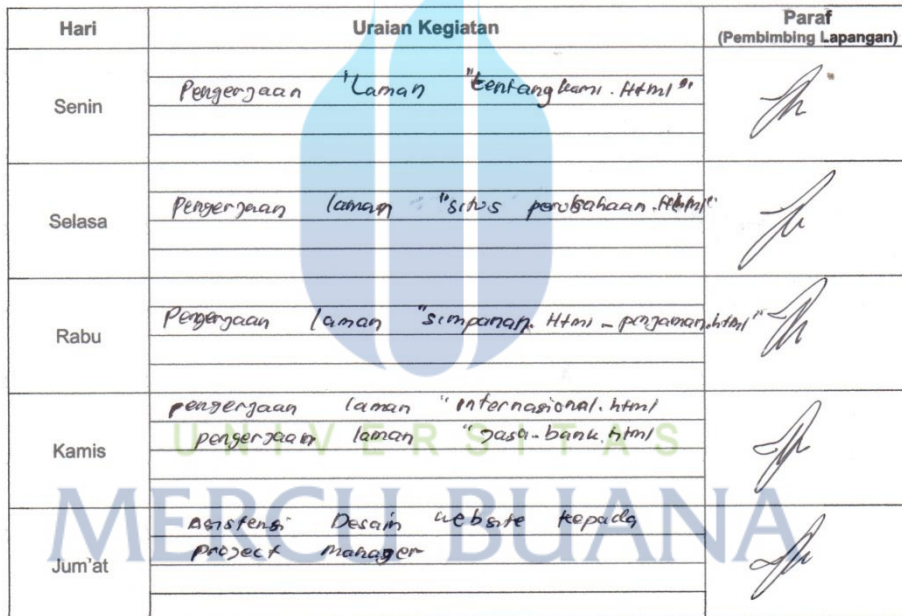 Hari Uraian Kegiatan Paraf
(Pembimbing Lapangan)
Senin
Pengerjaan "Laman "tentangkami.Html"
Selasa
Pengerjaan laman "situs perusahaan.Html"
Rabu
Pengerjaan laman "simpanan.Html - pinjaman.html"
Kamis
pengerjaan laman "internasional.html
pengerjaan laman "Jasa-bank.html
UNIVERSITAS
MERCU BUANA
Jum'at
Asistensi Desain website kepada
project manager